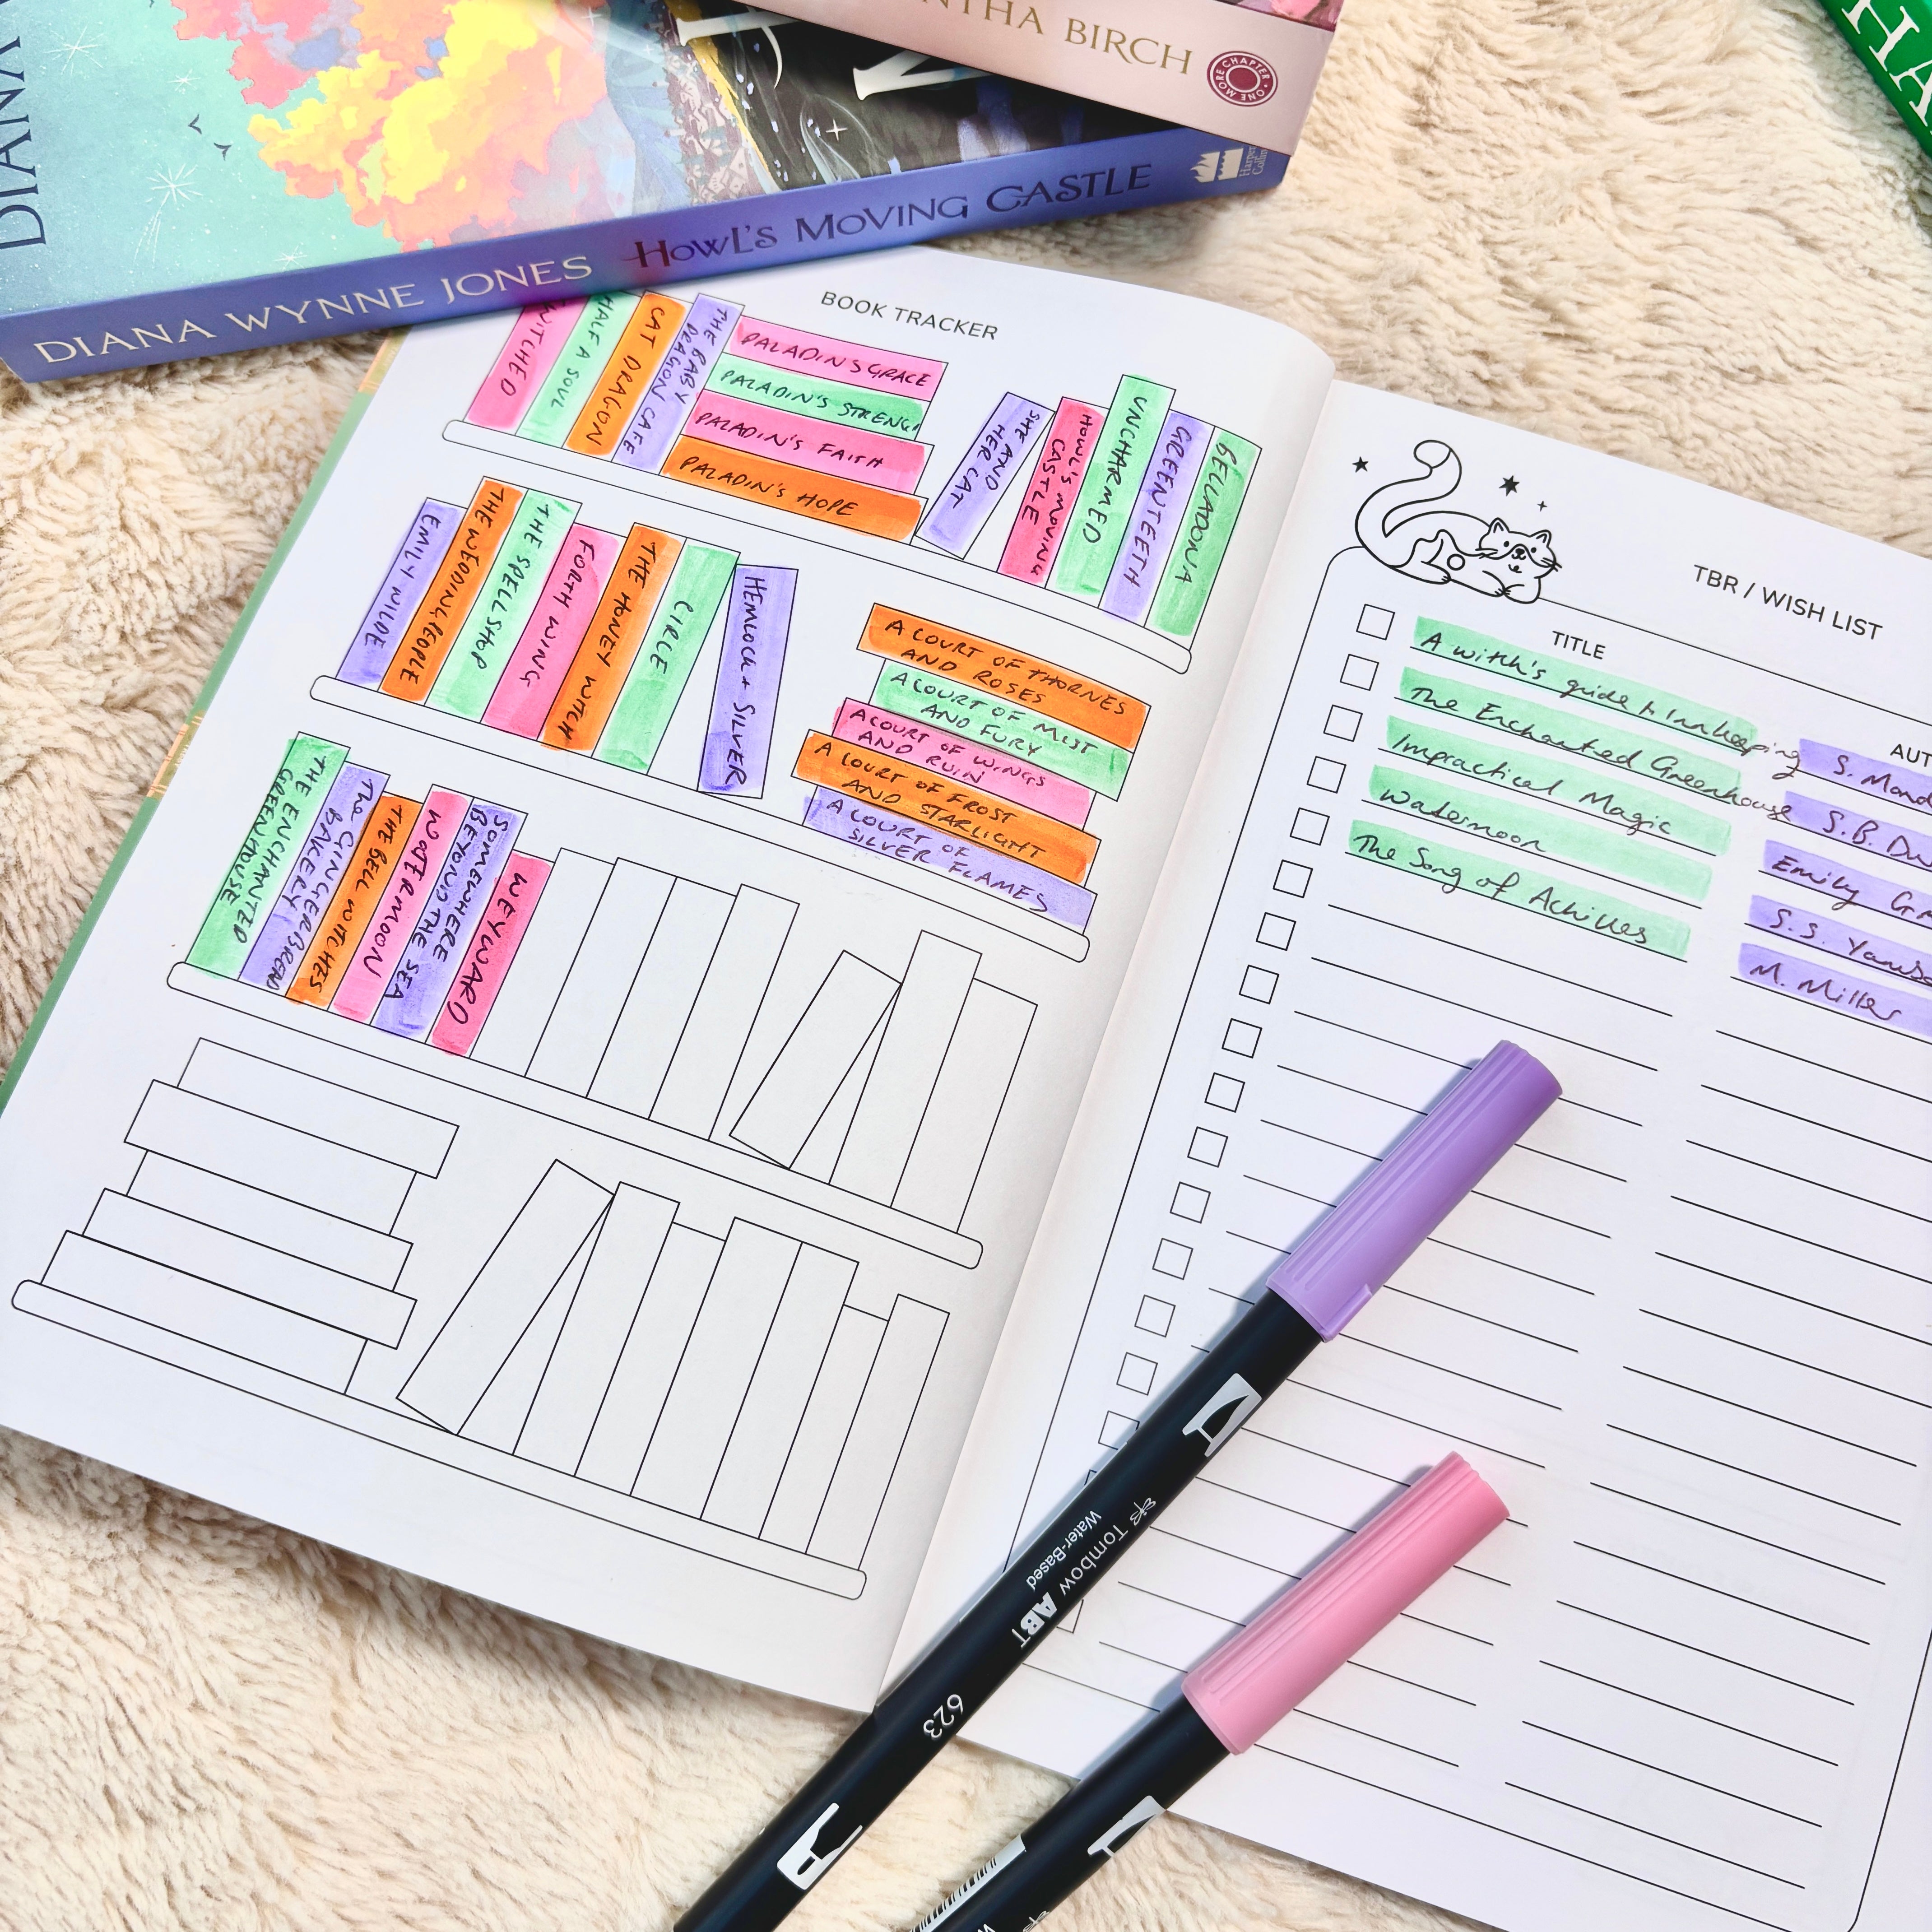 DIANA
NTHA BIRCH
ONE MORE CHAPTER
HA
DIANA WYNNE JONES HOWL'S MOVING CASTLE
Harper
Collin
BOOK TRACKER
WITCHED
HALF A SOUL
CAT DRAGON
THE BABY
DRAGON CAFE
PALADIN'S GRACE
PALADIN'S STRENG
PALADIN'S FAITH
PALADIN'S HOPE
SHE AND
HER CAT
HOWL'S MOVING
CASTLE
UNCHARMED
GREENTEETH
BELLADONA
EMILY WILDE
THE WEDDING PEOPLE
THE SPELLSHOP
FORTH WING
THE HONEY WITCH
CIRCLE
HEMLOCK + SILVER
A COURT OF THORNES
AND ROSES
A COURT OF MIST
AND FURY
A COURT OF WINGS
AND RUIN
A COURT OF FROST
AND STARLIGHT
A COURT OF
SILVER FLAMES
THE ENCHANTED
GREENHOUSE
The GINGERBREAD
BAKERY
THE BELL WITCHES
WATERMOON
SOMEWHERE
BEYOND THE SEA
WEYWARD
TBR / WISH LIST
TITLE
AUT
A witch's guide to Innkeeping
S. Mand
The Enchanted Greenhouse
S.B. Du
Impractical Magic
Emily Gr
Watermoon
S.S. Yam
The Song of Achilles
M. Miller
Tombow ABT
Water-Based
623